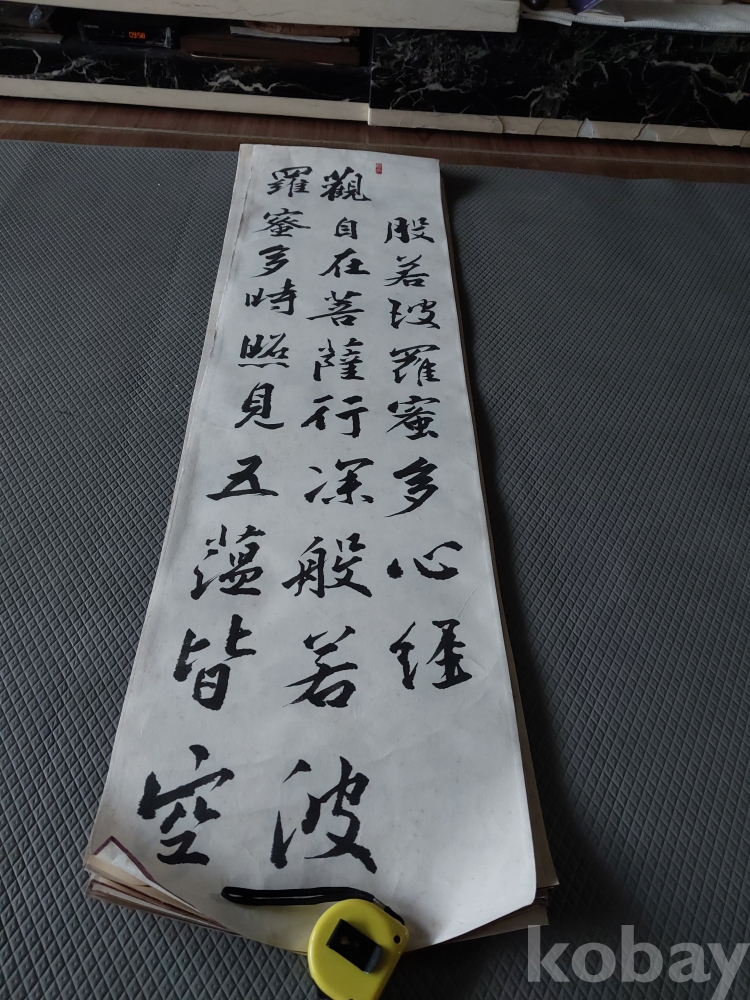 般若波羅蜜多心經
觀自在菩薩行深般若波
羅蜜多時照見五蘊皆空
kobay